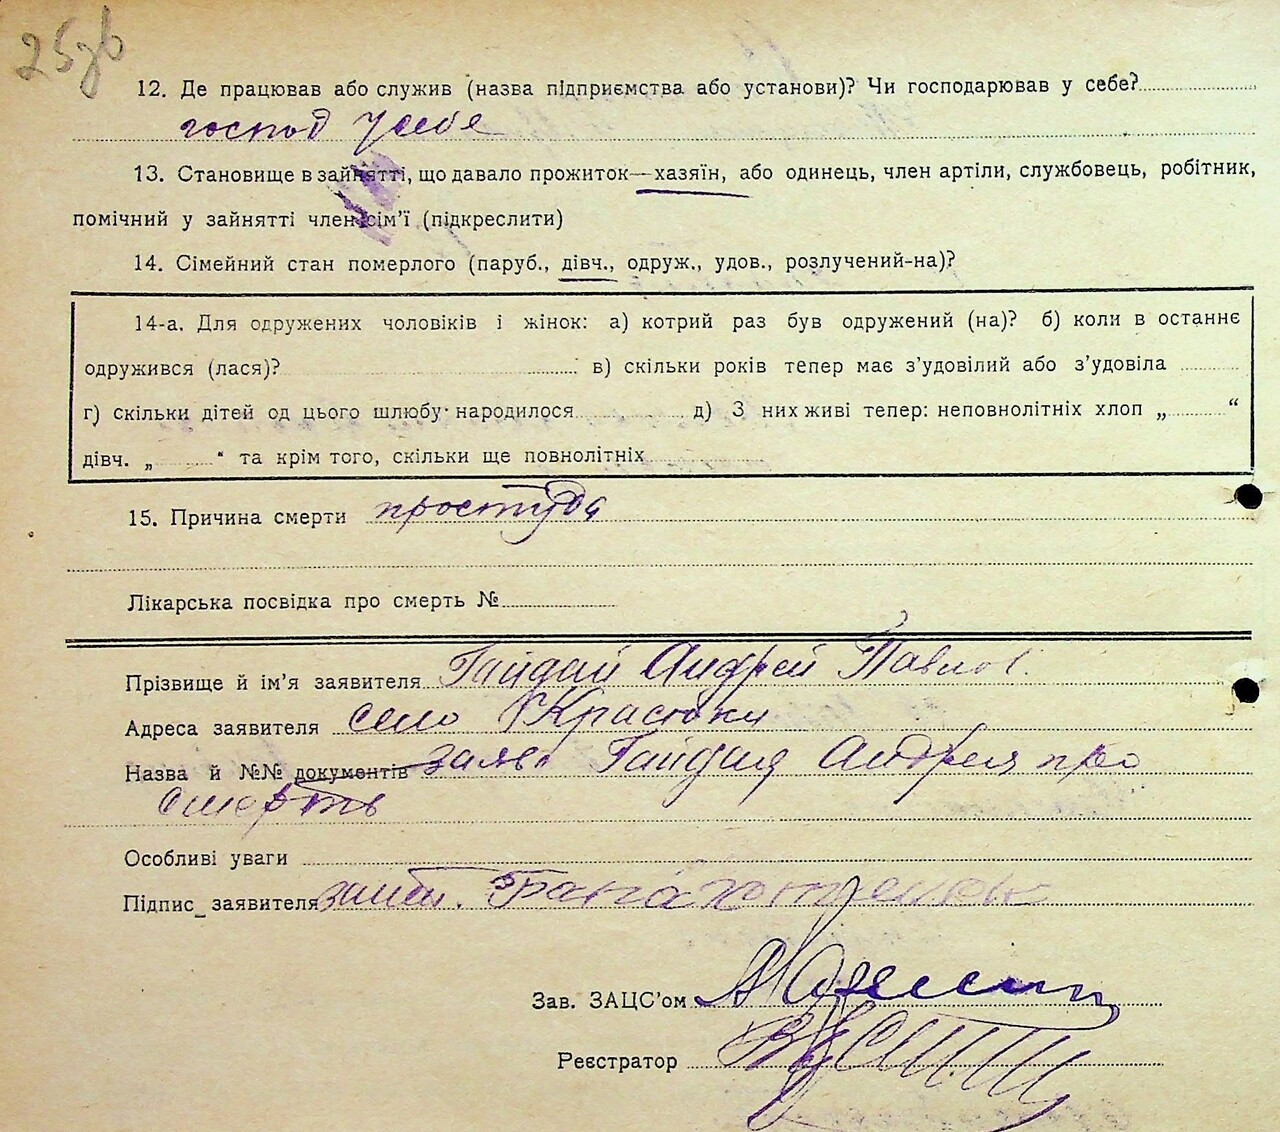 25зв
12. Де працював або служив (назва підприємства або установи)? Чи господарював у себе?
господ у себе
13. Становище в зайнятті, що давало прожиток—хазяїн, або одинець, член артіли, службовець, робітник,
помічний у зайнятті член сім’ї (підкреслити)
14. Сімейний стан померлого (паруб., дівч., одруж., удов., розлучений-на)?
14-а. Для одружених чоловіків і жінок: а) котрий раз був одружений (на)? б) коли в останнє
одружився (лася)? в) скільки років тепер має з’удовілий або з’удовіла
г) скільки дітей од цього шлюбу народилося д) З них живі тепер: неповнолітніх хлоп „ “
дівч. „ “ та крім того, скільки ще повнолітніх
15. Причина смерти простуда
Лікарська посвідка про смерть №
Прізвище й ім’я заявителя Гайдай Андрей Павлов.
Адреса заявителя село Красюки
Назва й №№ документів заяв Гайдая Андрея про
смерть
Особливі уваги
Підпис заявителя
Зав. ЗАЦС’ом
Реєстратор